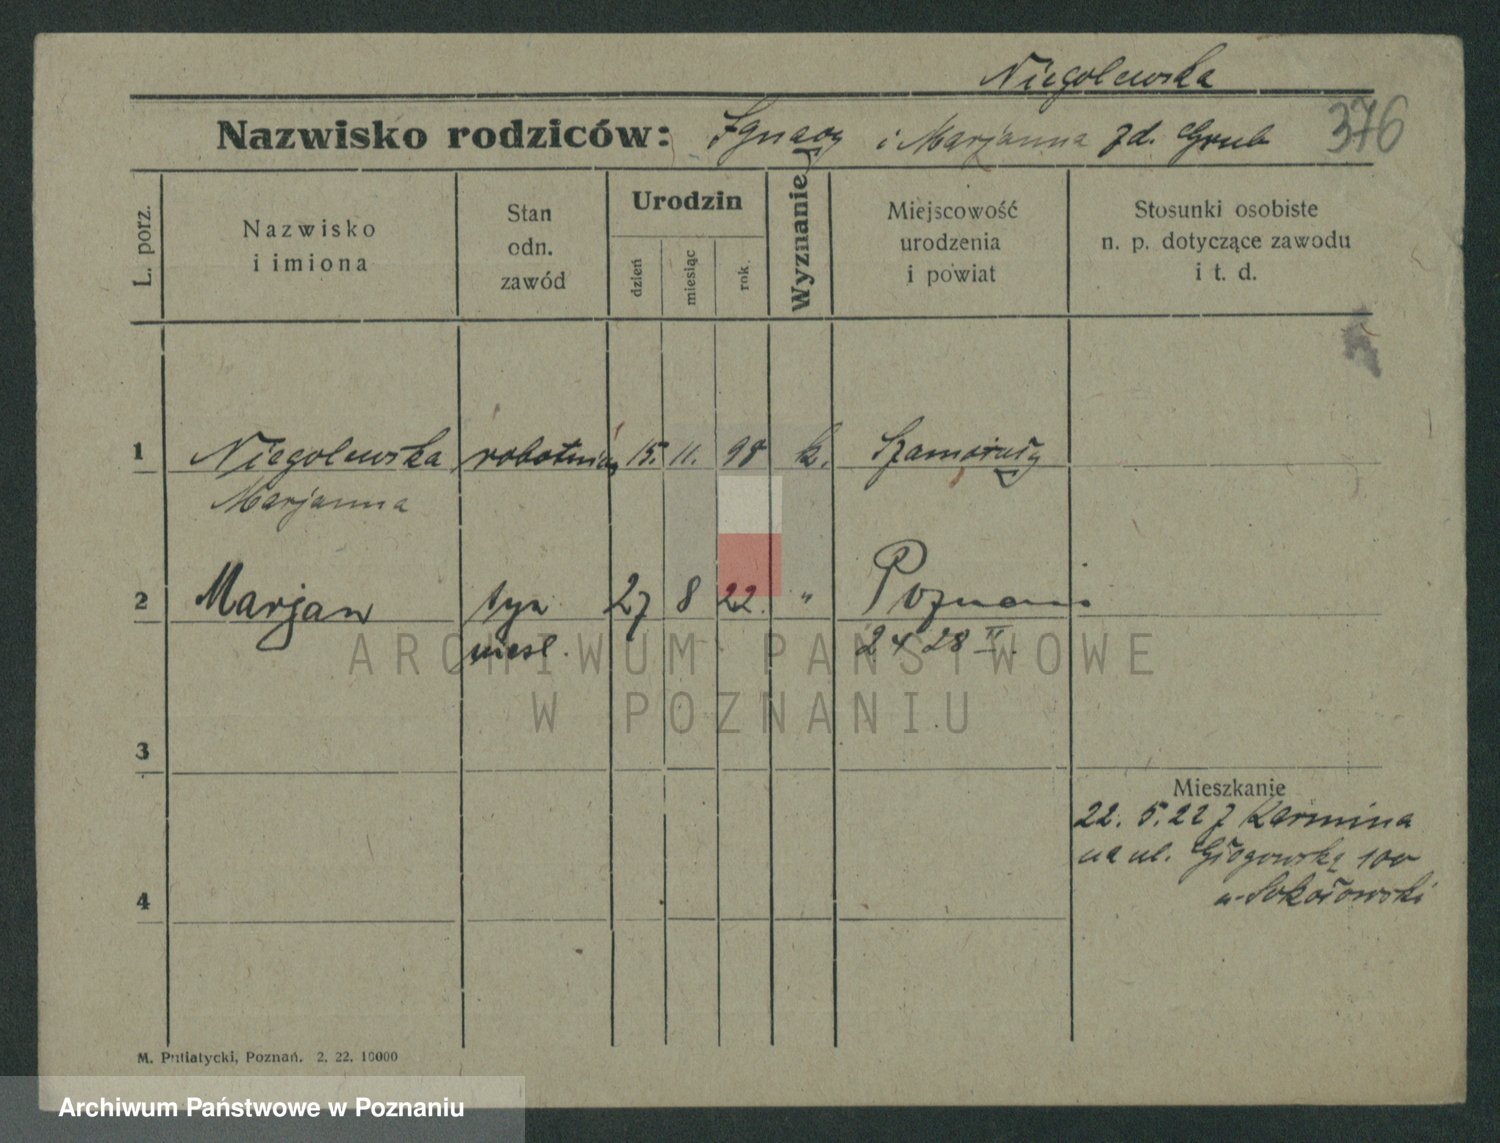 Niegolewska
376
Nazwisko rodziców: Ignacy i Marjanna zd. Grub
L. porz.
Nazwisko
i imiona
Stan
odn.
zawód
Urodzin
dzień
miesiąc
rok.
Wyznanie
Miejscowość
urodzenia
i powiat
Stosunki osobiste
n. p. dotyczące zawodu
i t. d.
1 Niegolewska robotnica 15. 11. 98 k. Szamotuły
Marjanna
2 Marjan syn 27 8 22. " Poznań
niesl. 24 28 II.
ARCHIWUM PAŃSTWOWE
W POZNANIU
3
Mieszkanie
22. 5. 22 z Karmina
na ul. Głogowską 100
u Sokołowski
4
M. Putiatycki, Poznań. 2. 22. 10000
Archiwum Państwowe w Poznaniu